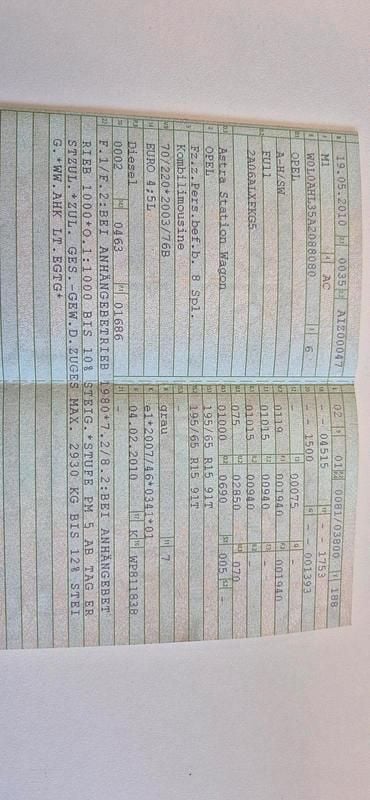 19.05.2010 0035 AIZ00047
M1 AC
W0L0AHL35A2088080 6
OPEL
A-H/SW
FU11
2A06ALXFKG5
Astra Station Wagon
OPEL
Fz.z.Pers.bef.b. 8 Spl.
Kombilimousine
70/220*2003/76B
EURO 4;5L
Diesel
0002 0463 01686
02 01 0081/03800 188
- - 04515 - - 1753
- - 1500 - - 001393
- 00075 -
0119 001940 001940
01015 00940 -
01015 00940 -
075 02850 070
01000 0690 005 -
195/65 R15 91T
195/65 R15 91T
-
grau 7
e1*2007/46*0341*01
04.02.2010 K WP81183B
-
F.1/F.2:BEI ANHÄNGEBETRIEB 1980*7.2/8.2:BEI ANHÄNGEBET
RIEB 1000*O.1:1000 BIS 10% STEIG.*STUFE PM 5 AB TAG ER
STZUL.*ZUL. GES.-GEW.D.ZUGES MAX. 2930 KG BIS 12% STEI
G.*WW.AHK LT.EGTG*